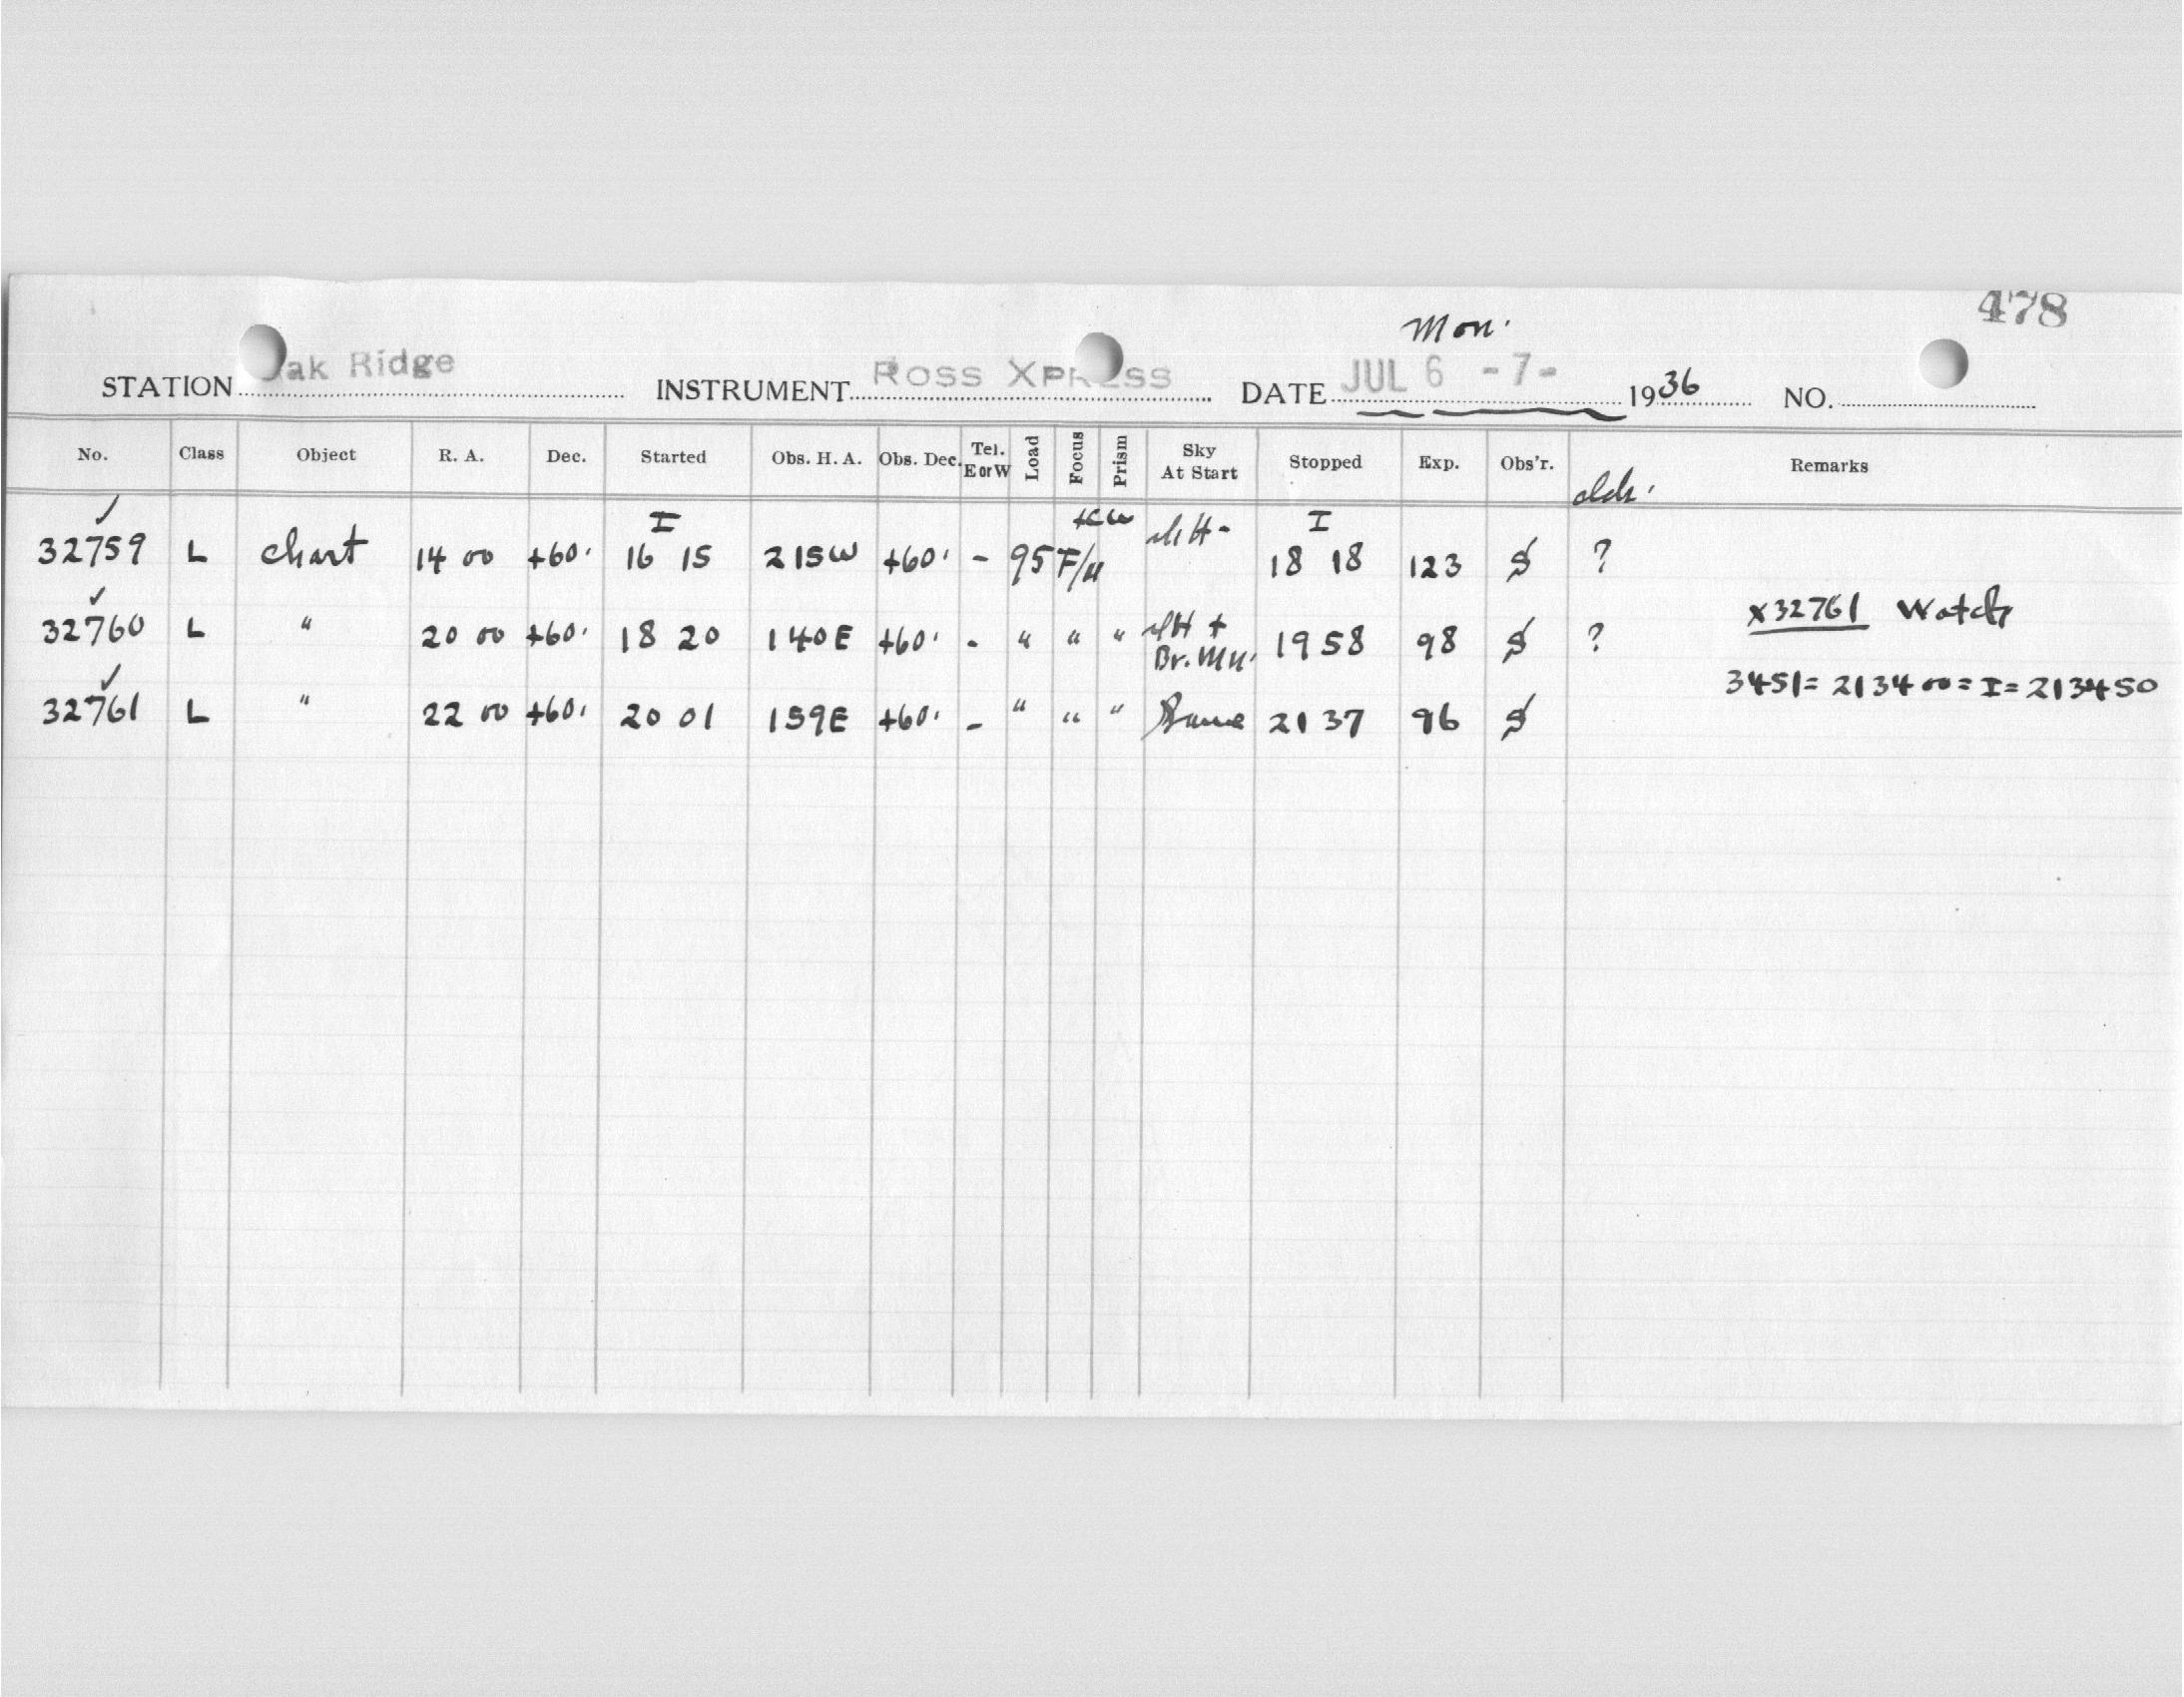 478
Mon.
STATION Oak Ridge INSTRUMENT ROSS XPRESS DATE JUL 6 -7- 1936 NO.
No. Class Object R. A. Dec. Started Obs. H. A. Obs. Dec. Tel. E or W Load Focus Prism Sky At Start Stopped Exp. Obs'r. Remarks
✓ I I
32759 L Chart 14 00 +60. 16 15 215W +60. - 95 18 18 123 S ?
✓
32760 L " 20 00 +60. 18 20 140E +60. - " " " Br. 19 58 98 S ?
✓
32761 L " 22 00 +60. 20 01 159E +60. - " " " Same 21 37 96 S
x32761 Watch
3451= 2134 00 = I = 213450